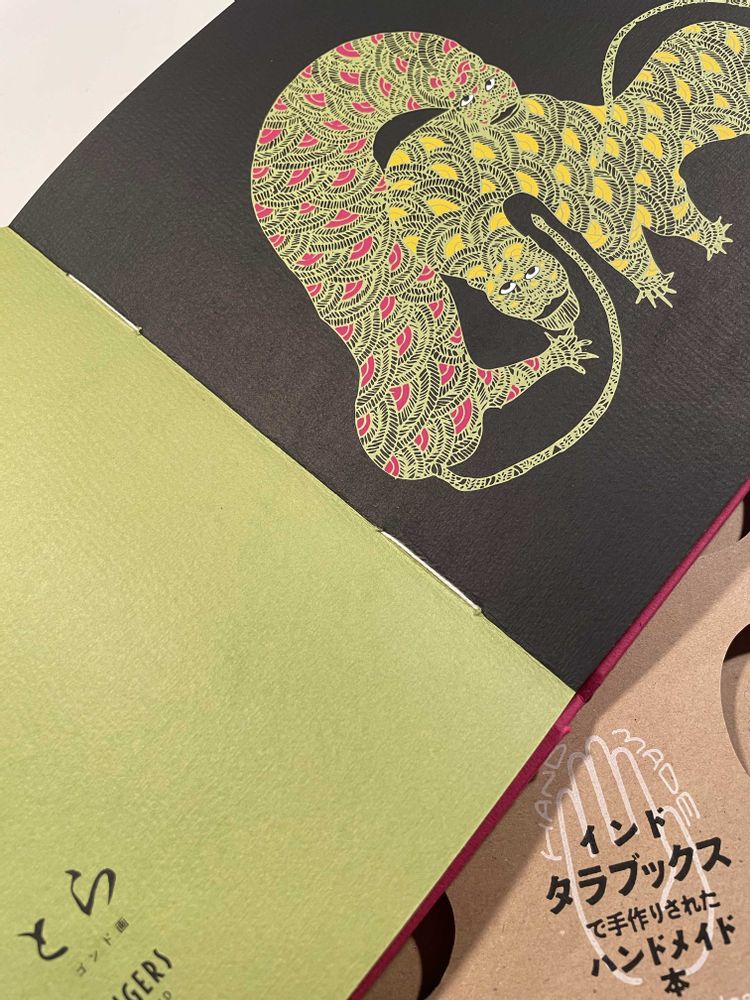 とら
ゴンド画
HAND MADE
インド
タラブックス
で手作りされた
ハンドメイド
本